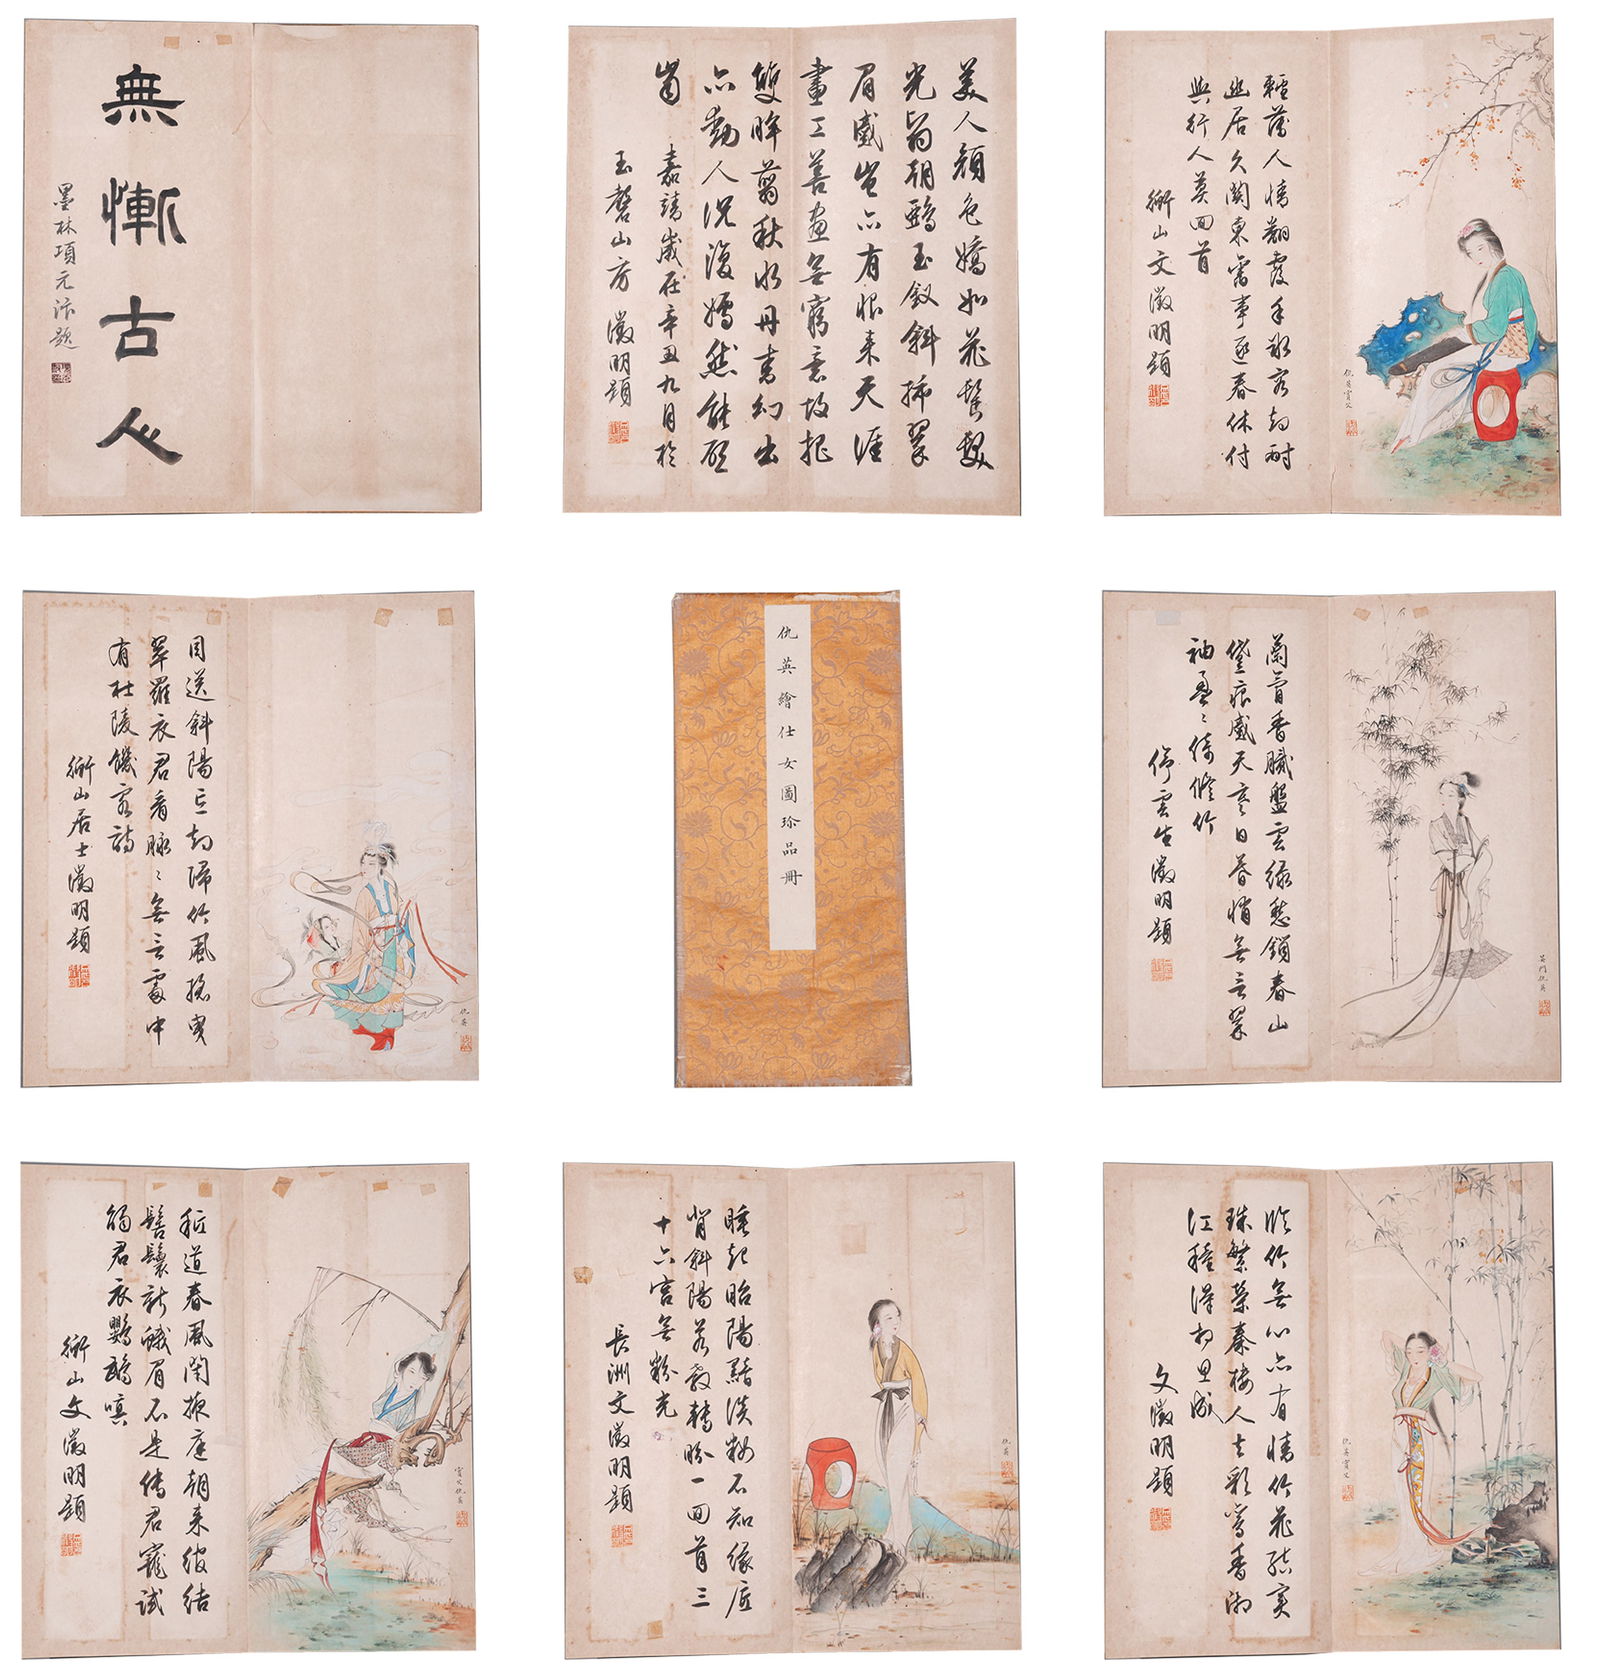 無慚古人
墨林項元汴題
美人顏色嬌如花鬢髮
光翁朝鴉玉釵斜插翠
眉蹙豈亦有恨來天涯
畫工善畫無窮意故把
雙眸翦秋水丹青幻出
亦動人況復嫣然能啟
齒 嘉靖歲在辛丑九月於
玉磬山房 徵明題
輕薄人情翻覆手却耐
幽居久關事逐春休付
與行人莫回首
衡山文徵明題
仇英實父
目送斜陽忘却歸竹風搖曳
翠羅衣君看脉〻無言處中
有杜陵饑客詩
衡山居士徵明題
仇英
仇英繪仕女圖珍品冊
蘭膏香膩盤雲綠愁鎖春山
黛痕蹙天寒日暮悄無言翠
袖盈〻倚修竹
停雲生徵明題
吳門仇英
秖道春風閉掖庭朝來綰結
髻鬟新蛾眉不是傳君寵試
君衣鸚鵡嗔
衡山文徵明題
實父仇英
睡起昭陽黯淡粧不知緣底
背斜陽若教轉盼一回首三
十六宮無粉光
長洲文徵明題
仇英
臨竹無心亦有情竹花結實
珠繁榮秦樓人去彩鸞杳湘
江種得相思成
文徵明題
仇英實父